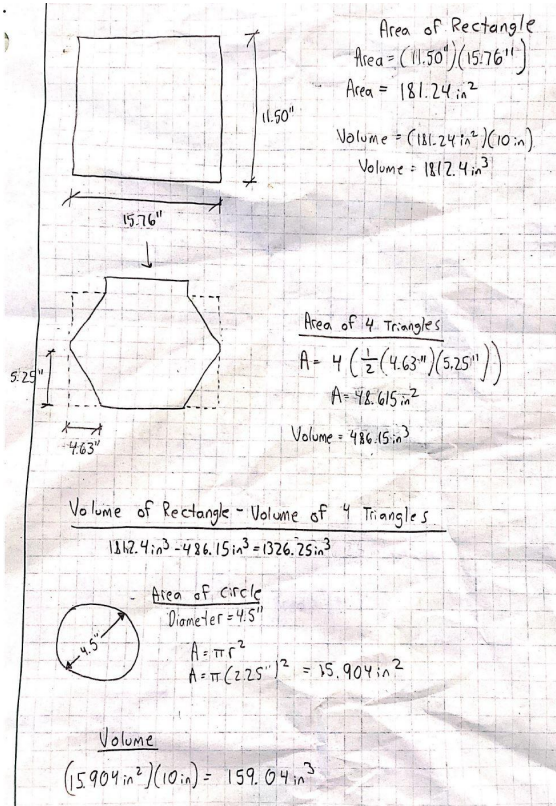 Area of Rectangle
Area = (11.50")(15.76")
Area = 181.24 in²
11.50"
Volume = (181.24 in²)(10 in)
Volume = 1812.4 in³
15.76"
Area of 4 Triangles
A = 4 (½(4.63")(5.25"))
A = 48.615 in²
5.25"
Volume = 486.15 in³
4.63"
Volume of Rectangle - Volume of 4 Triangles
1812.4 in³ - 486.15 in³ = 1326.25 in³
Area of circle
Diameter = 4.5"
4.5"
A = πr²
A = π(2.25")² = 15.904 in²
Volume
(15.904 in²)(10 in) = 159.04 in³